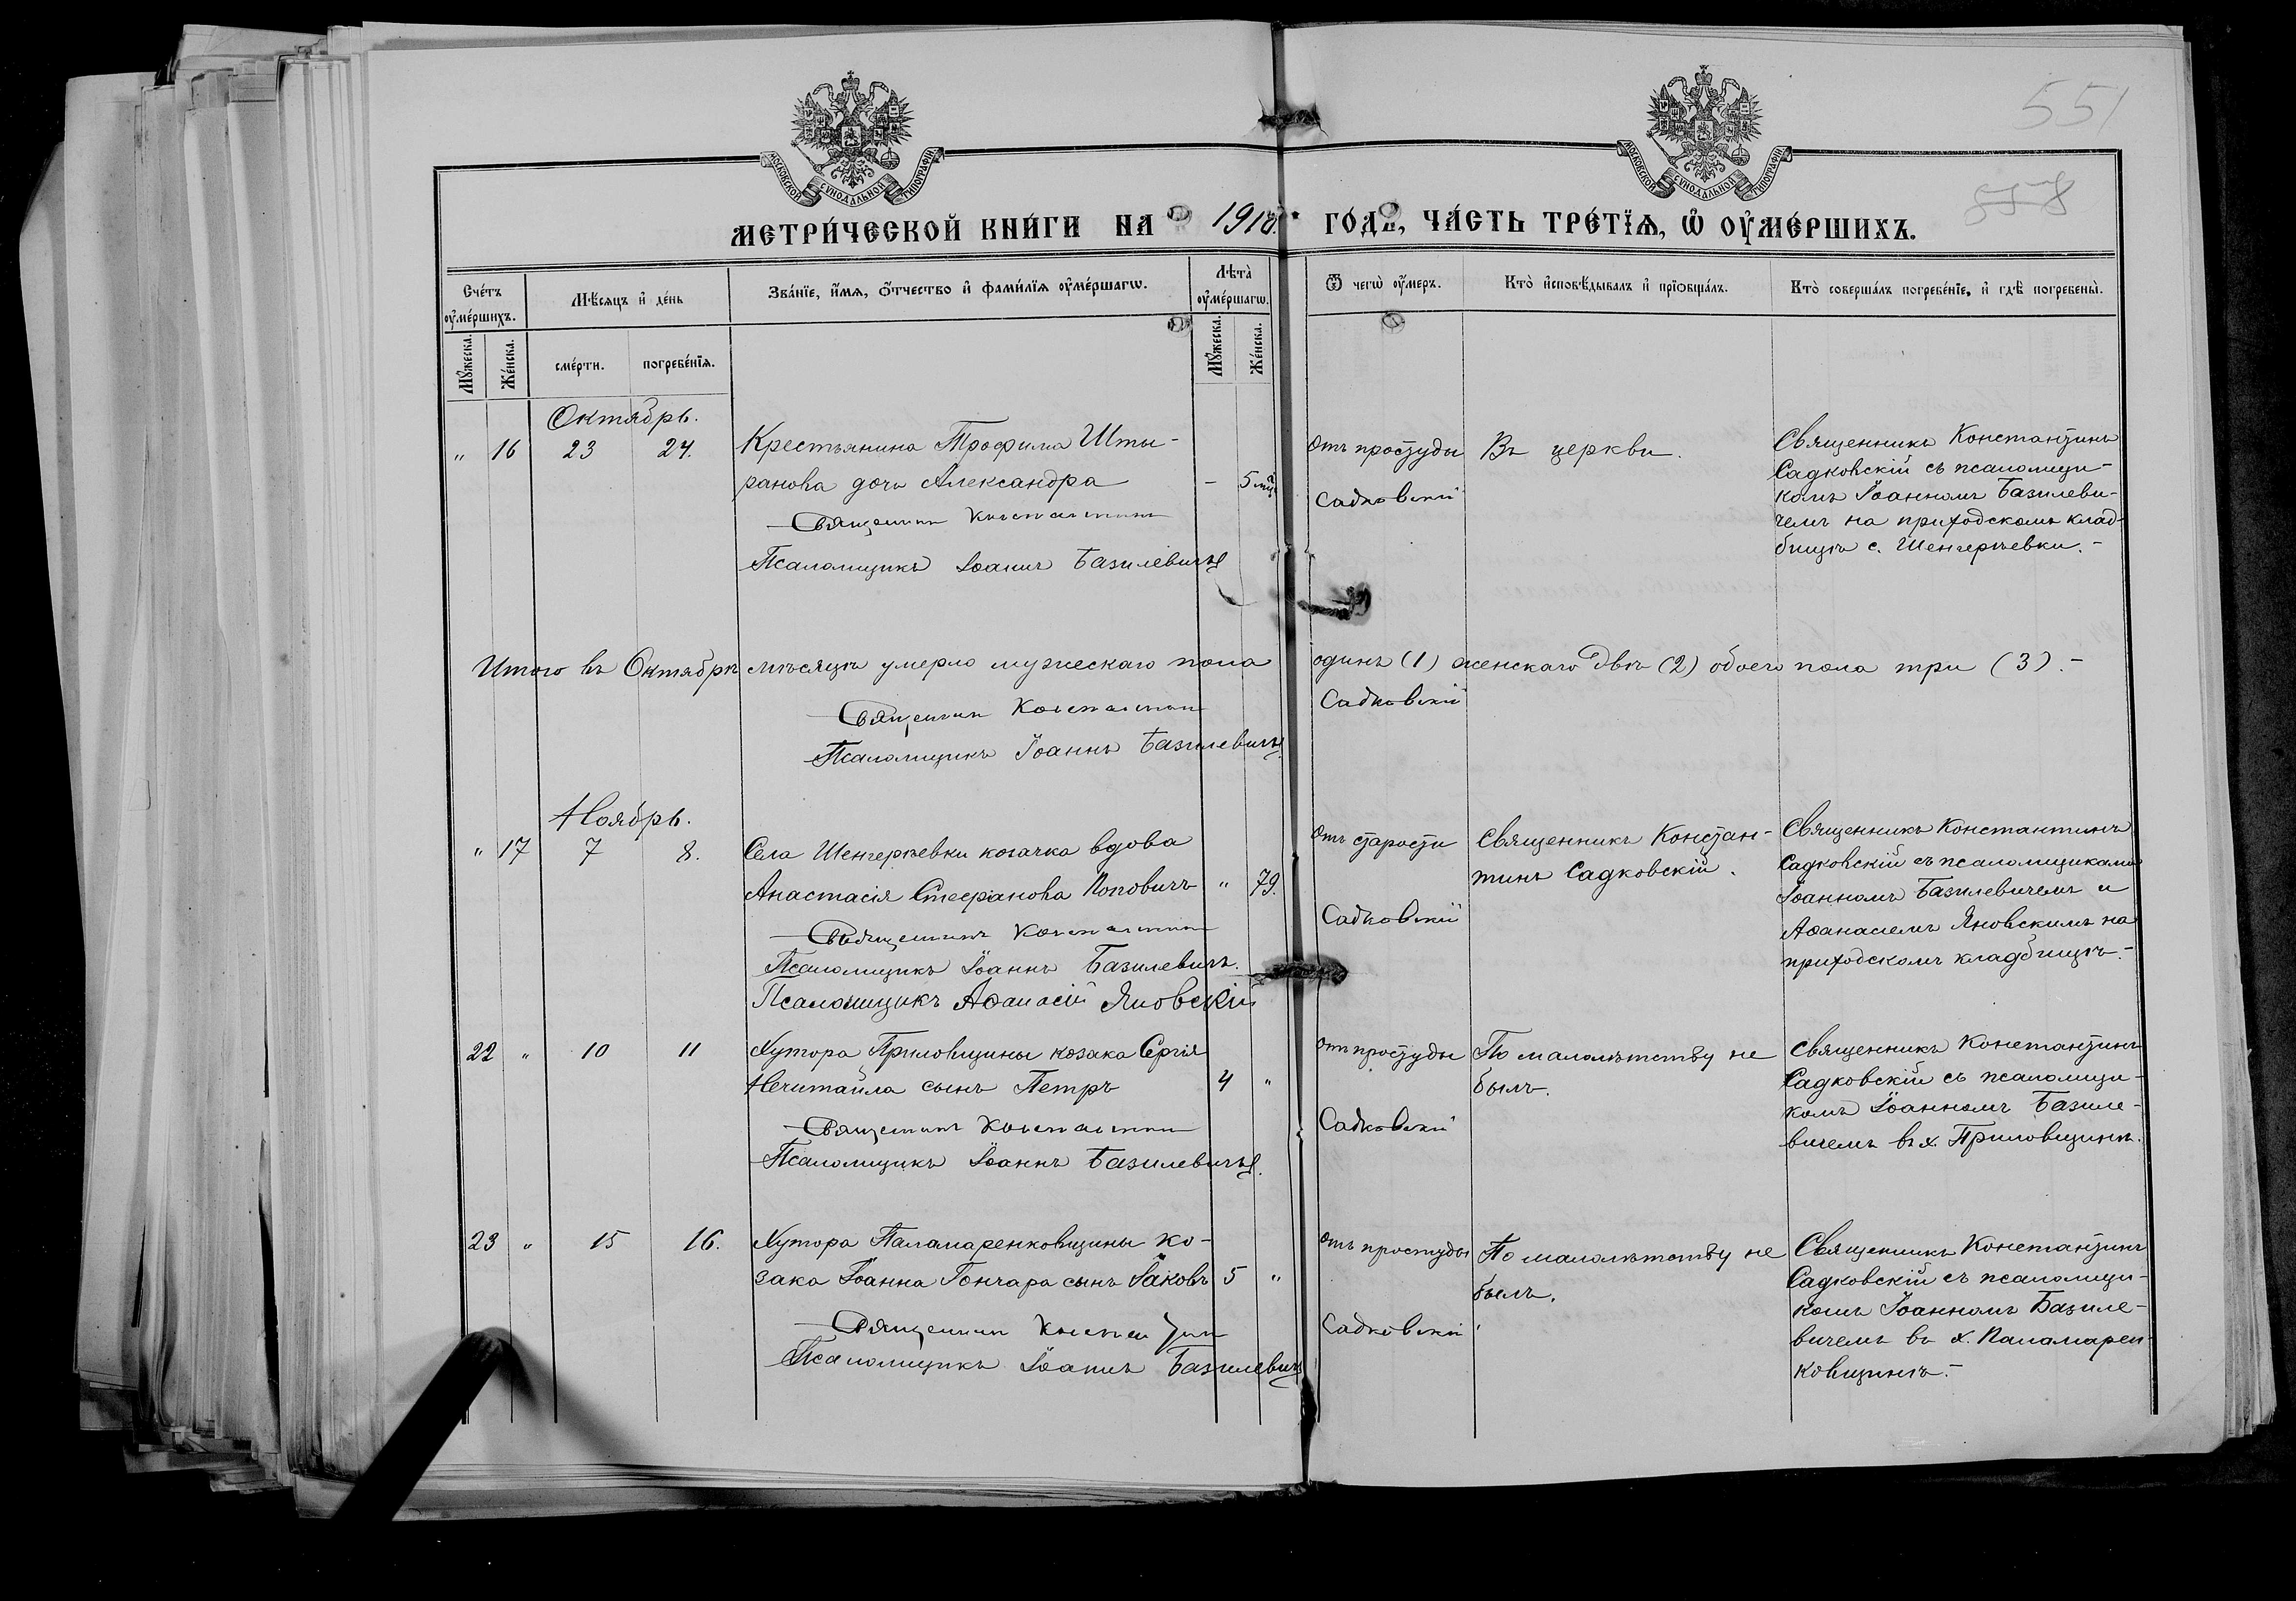 551
558
МОСКОВСКОЙ СѴНОДАЛЬНОЙ ТИПОГРАФІИ
МОСКОВСКОЙ СѴНОДАЛЬНОЙ ТИПОГРАФІИ
МЕТРИ́ЧЕСКОЙ КНИ́ГИ НА 1918. ГО́ДЪ, ЧА́СТЬ ТРЕ́ТЇѦ, Ѡ҆ ОУ҆МЕ́РШИХЪ.
Сче́тъ оу҆ме́ршихъ.
Мѣ́сяцъ и҆ де́нь
Зва́нїе, и҆́мѧ, ѻ҆́тчество и҆ фами́лїѧ оу҆ме́ршагѡ.
Лѣ́та оу҆ме́ршагѡ.
Ѿ чегѡ̀ оу҆́меръ.
Кто̀ и҆сповѣ́дывалъ и҆ прїѡбща́лъ.
Кто̀ соверша́лъ погребе́нїе, и҆ гдѣ̀ погребены̀.
Мꙋ́жеска.
Же́нска.
сме́рти.
погребе́нїѧ.
Мꙋ́жеска.
Же́нска.
Октябрь.
" 16 23 24. Крестьянина Трофима Шты-
ранова дочь Александра — 5 мц
Священник Константин
Псаломщикъ Іоаннъ Базилевичъ
Отъ простуды
Садковскій
Въ церкви.
Священникъ Константинъ
Садковскій съ псаломщи-
комъ Іоанномъ Базилеви-
чемъ на приходскомъ клад-
бищѣ с. Шенгерѣевки.-
Итого въ Октябрѣ мѣсяцѣ умерло мужескаго пола одинъ (1) женскаго двѣ (2) обоего пола три (3).-
Священник Константин Садковскій
Псаломщикъ Іоаннъ Базилевичъ
Ноябрь.
" 17 7 8. Села Шенгерѣевки козачка вдова
Анастасія Стефанова Поповичъ " 79.
Священникъ Константин
Псаломщикъ Іоаннъ Базилевичъ.
Псаломщикъ Аѳанасій Яновскій
Отъ старости
Садковскій
Священникъ Констан-
тинъ Садковскій.
Священникъ Константинъ
Садковскій съ псаломщиками
Іоанномъ Базилевичемъ и
Аѳанасіемъ Яновскимъ на
приходскомъ кладбищѣ.-
22 " 10 11 Хутора Приловщины козака Сергія
Нечитайла сынъ Петръ 4 "
Священникъ Константин
Псаломщикъ Іоаннъ Базилевичъ.
Отъ простуды
Садковскій
По малолѣтству не
былъ.
Священникъ Константинъ
Садковскій съ псаломщи-
комъ Іоанномъ Базиле-
вичемъ въ х. Приловщинѣ.
23 " 15 16. Хутора Паламаренковщины ко-
зака Іоанна Гончара сынъ Іаковъ 5 "
Священник Константин
Псаломщикъ Іоаннъ Базилевичъ
Отъ простуды
Садковскій
По малолѣтству не
былъ.
Священникъ Константинъ
Садковскій съ псаломщи-
комъ Іоанномъ Базиле-
вичемъ въ х. Паламарен-
ковщинѣ.-